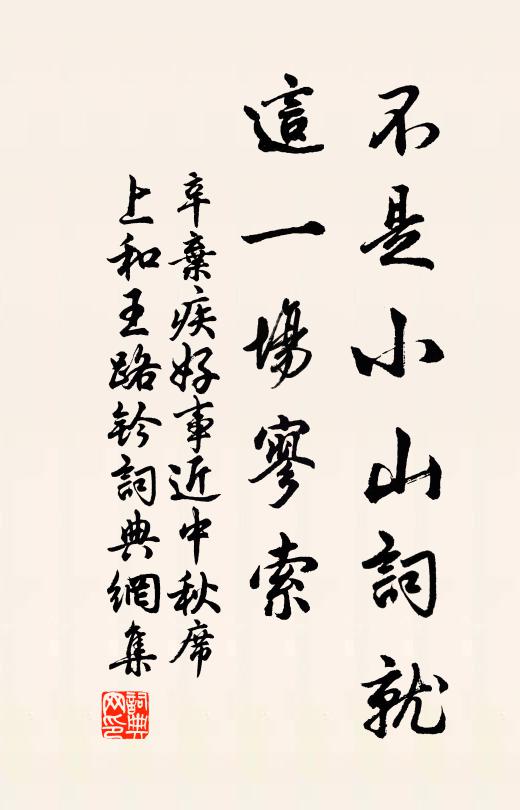 不是小山詞就
這一場寥索
辛棄疾好事近中秋席
上和王路鈐詞典網集
詞典
网印